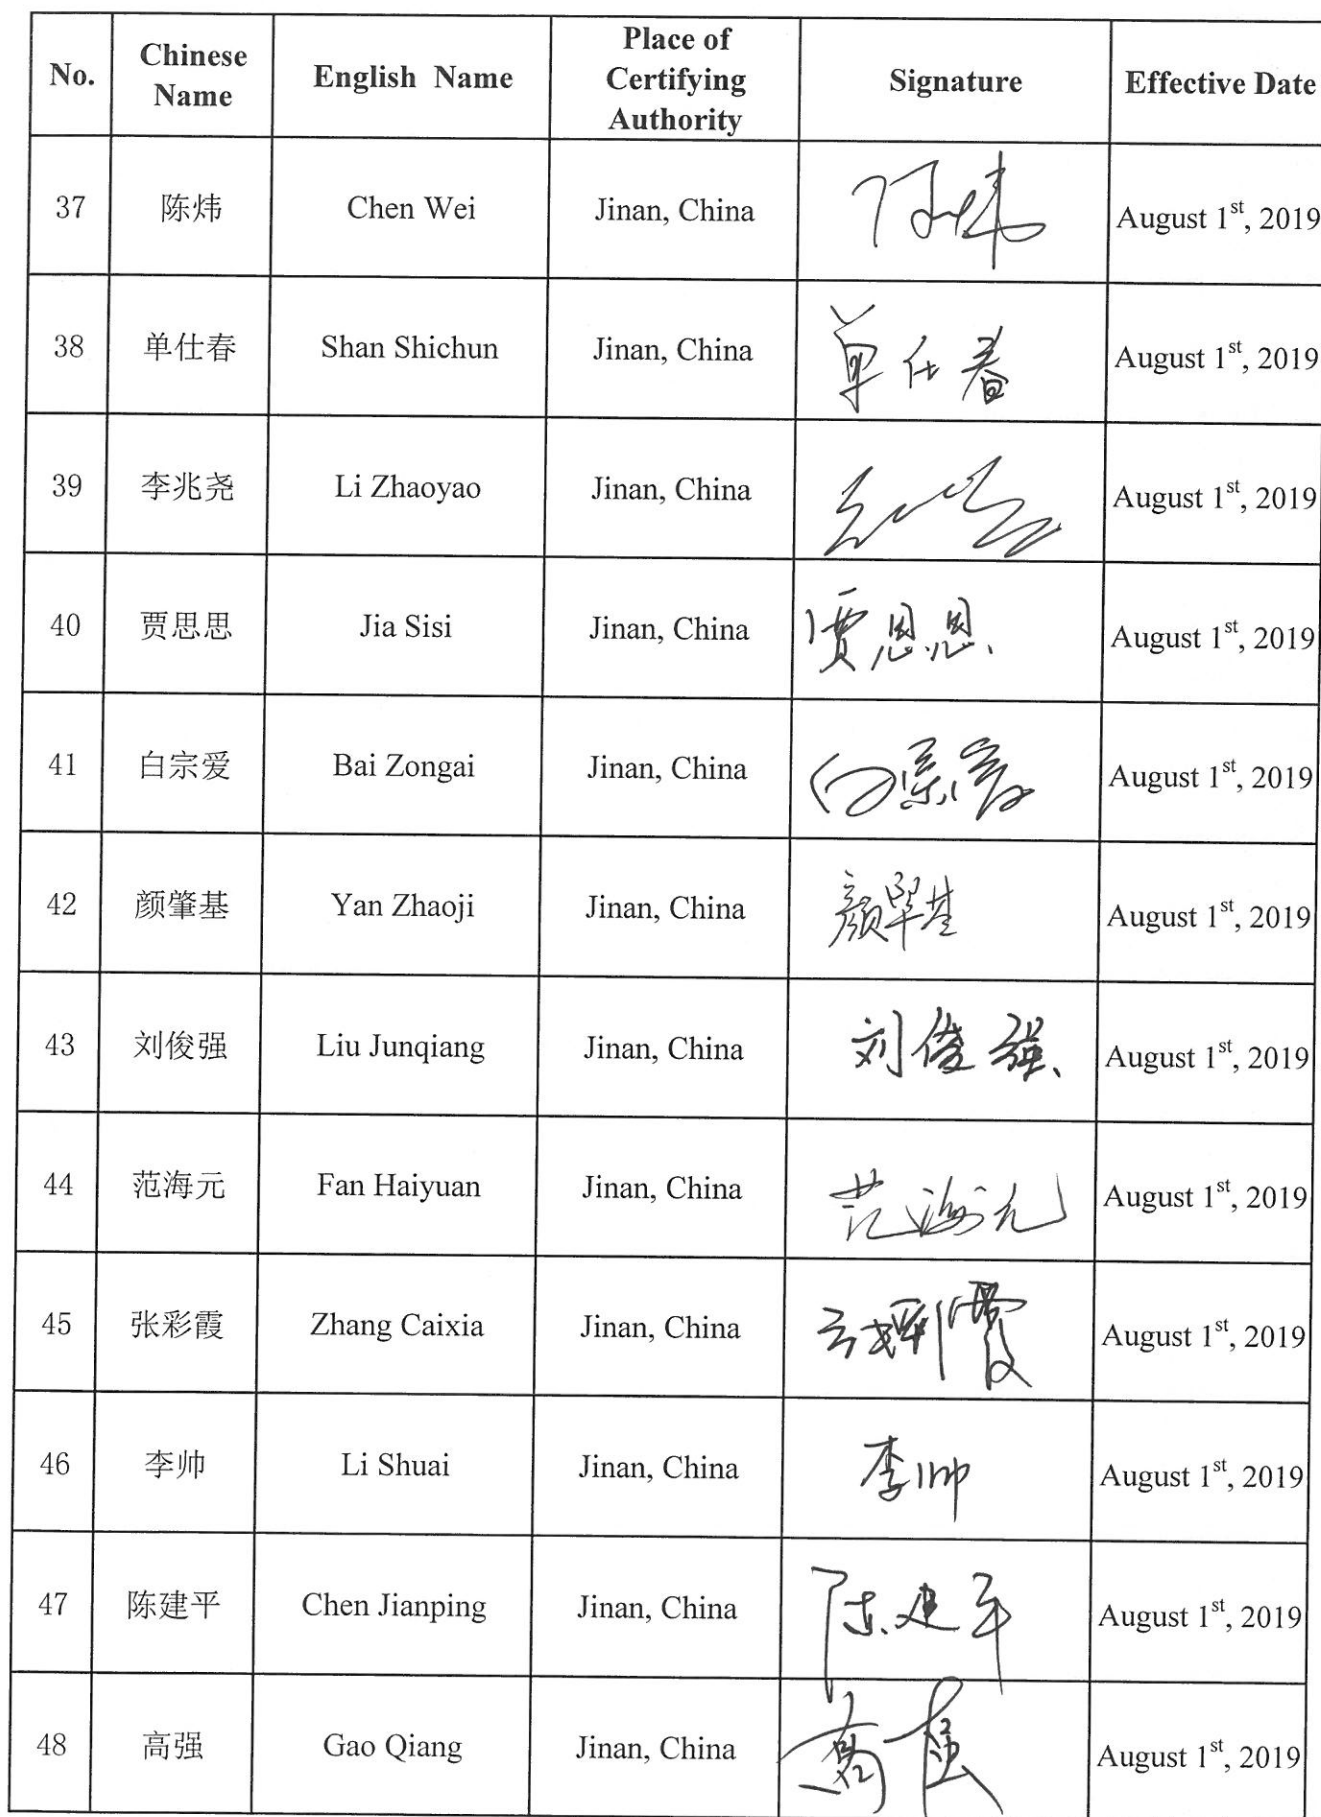 No. Chinese Name English Name Place of Certifying Authority Signature Effective Date
37 陈炜 Chen Wei Jinan, China 陈炜 August 1st, 2019
38 单仕春 Shan Shichun Jinan, China 单仕春 August 1st, 2019
39 李兆尧 Li Zhaoyao Jinan, China August 1st, 2019
40 贾思思 Jia Sisi Jinan, China 贾思思 August 1st, 2019
41 白宗爱 Bai Zongai Jinan, China 白宗爱 August 1st, 2019
42 颜肇基 Yan Zhaoji Jinan, China 颜肇基 August 1st, 2019
43 刘俊强 Liu Junqiang Jinan, China 刘俊强 August 1st, 2019
44 范海元 Fan Haiyuan Jinan, China 范海元 August 1st, 2019
45 张彩霞 Zhang Caixia Jinan, China 张彩霞 August 1st, 2019
46 李帅 Li Shuai Jinan, China 李帅 August 1st, 2019
47 陈建平 Chen Jianping Jinan, China 陈建平 August 1st, 2019
48 高强 Gao Qiang Jinan, China 高强 August 1st, 2019